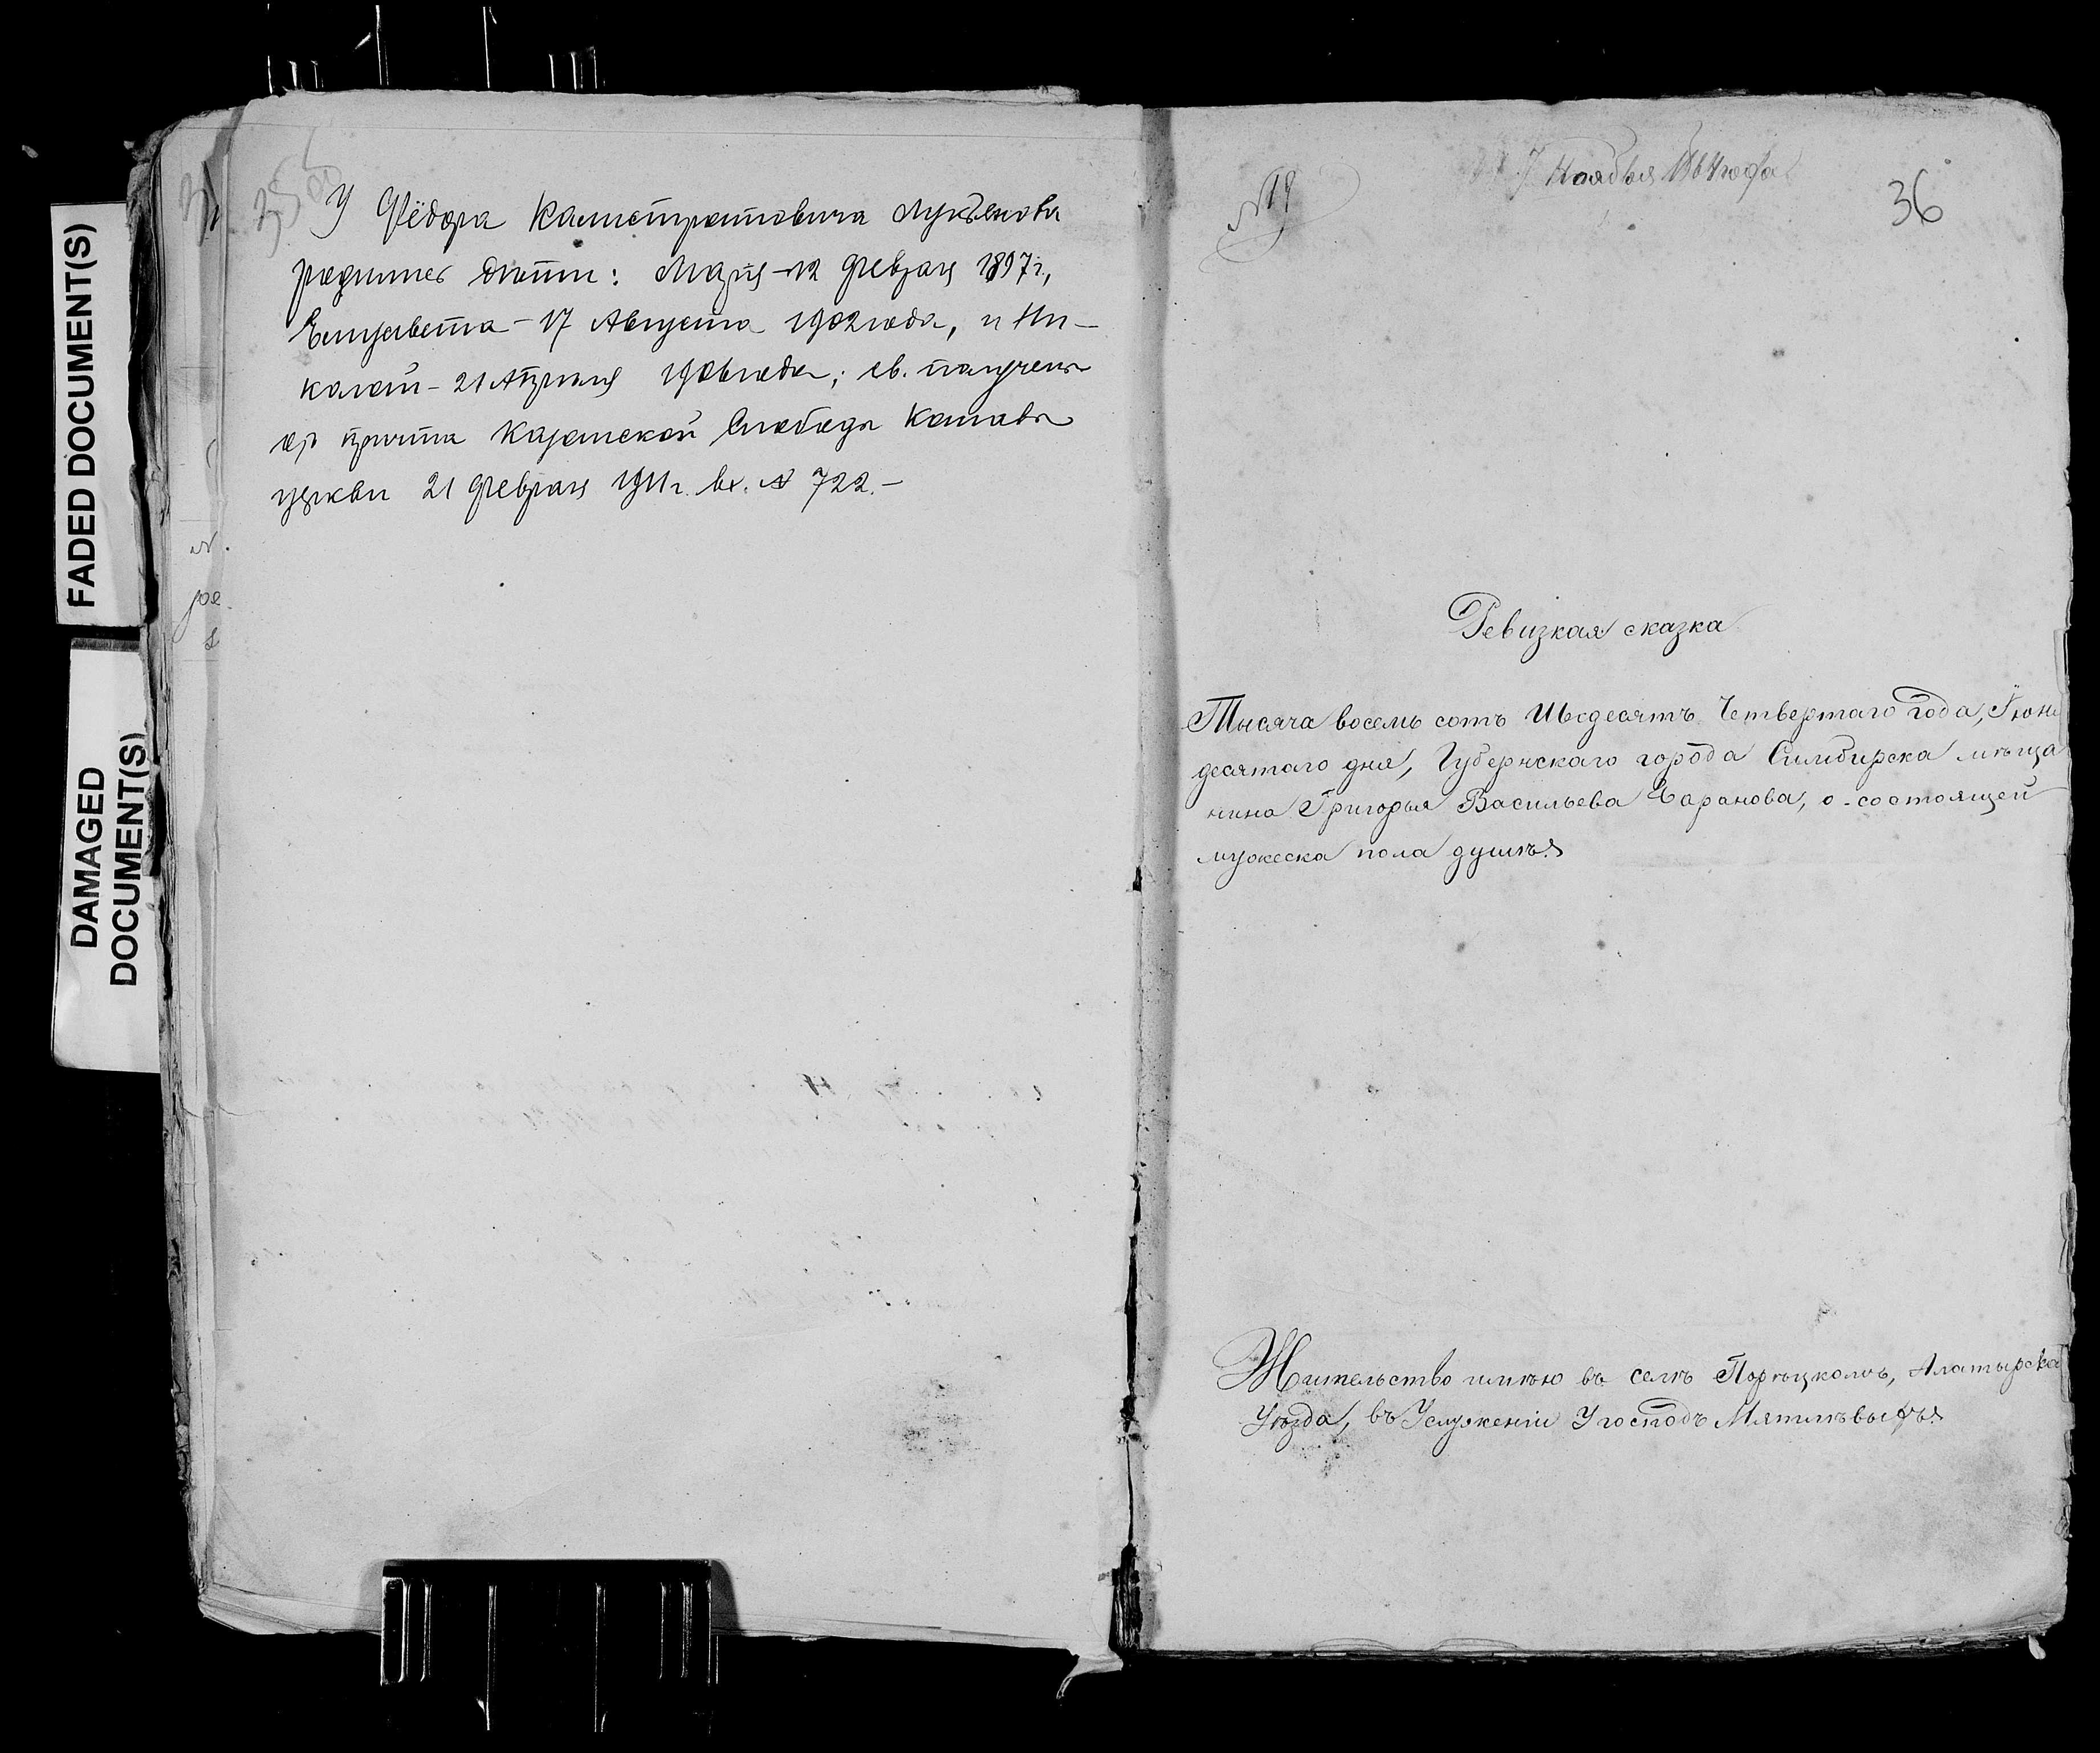 FADED DOCUMENT(S)
DAMAGED
DOCUMENT(S)
У Фёдора Калистратовича Лукьянова
родились дѣти: Марія - 12 Февраля 1897 г.,
Елизавета - 17 Августа 1902 года, и Ни-
колай - 21 Апрѣля 1906 года; св. получены
отъ причта Казанской Слободы
церкви 21 Февраля 1911 г. вх. № 722. -
№ 19
7 Ноября 1864 года
36
Ревизкая сказка
Тысяча восемь сотъ Шесдесятъ Четвертаго года, Іюня
десятаго дня, Губернскаго города Симбирска мѣща
нина Григорья Васильева Баранова, о состоящей
мужеска пола душѣ.
Жительство имѣю въ селѣ Порѣцкомъ, Алатырска
Уѣзда, въ Услуженіи У господъ Мятлѣвыхъ.